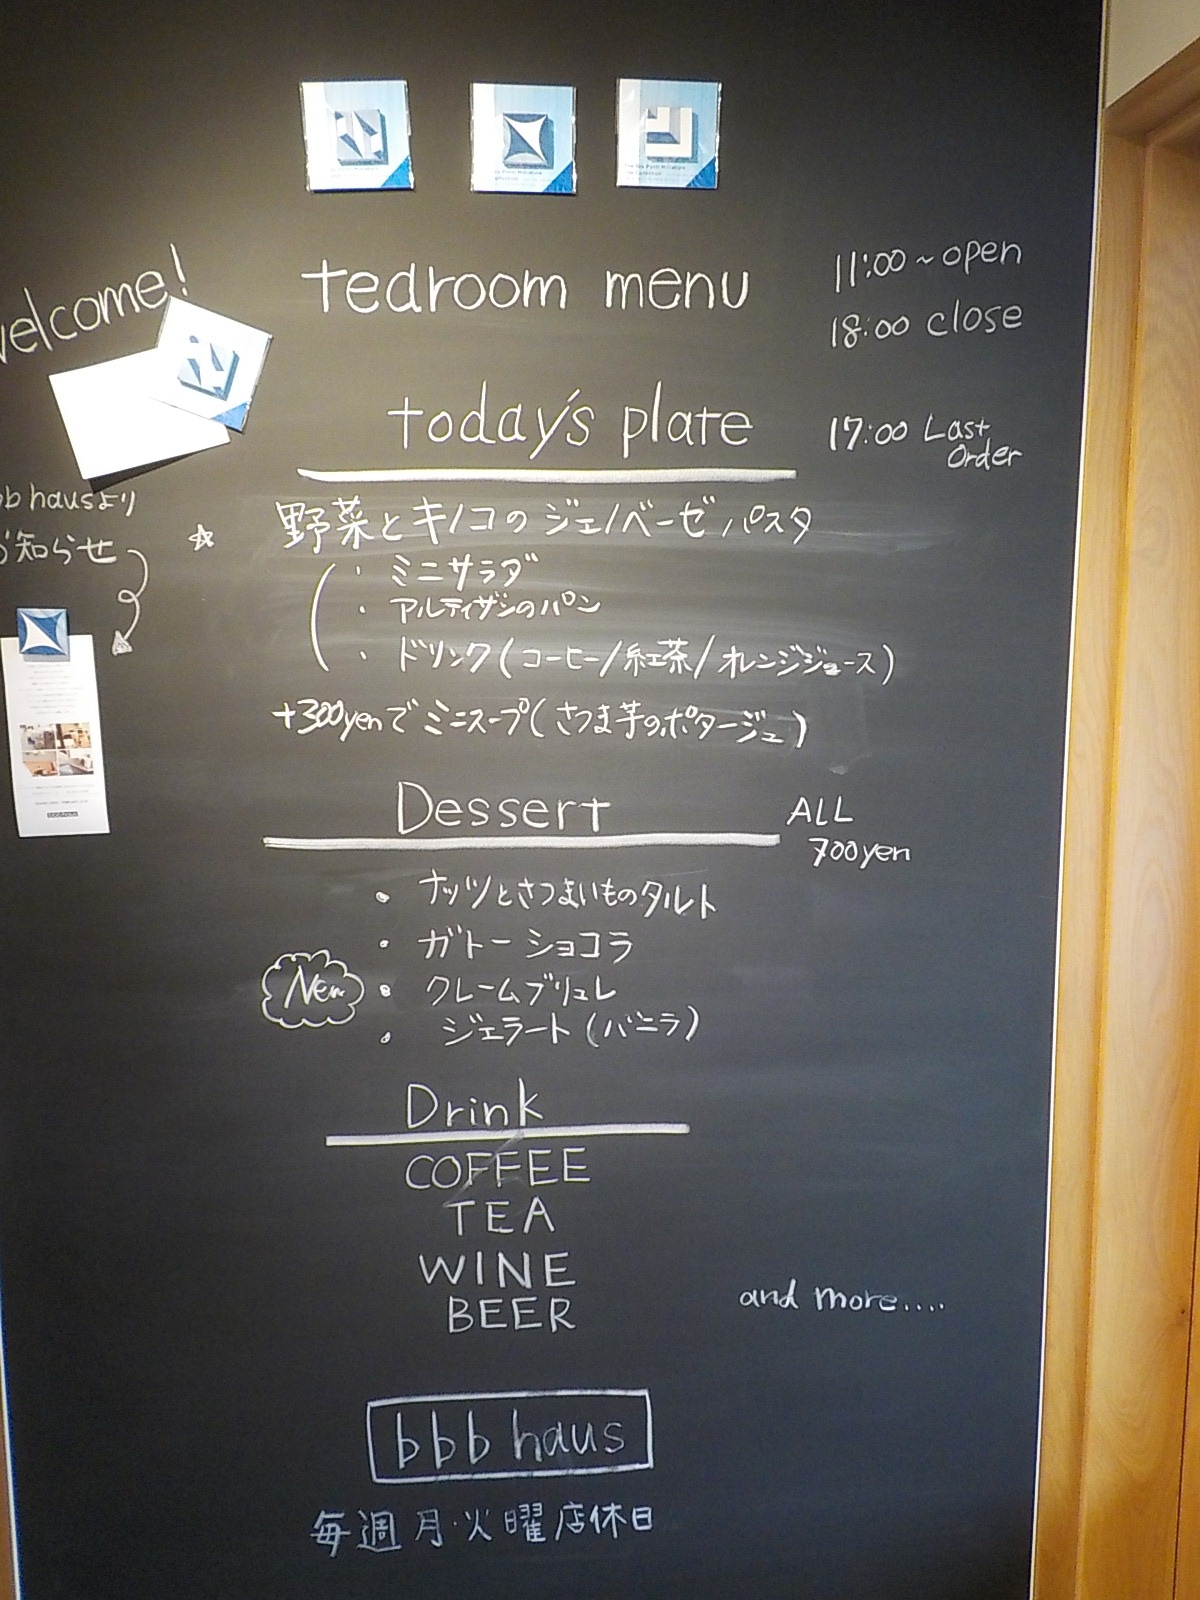 welcome!
tearoom menu
11:00 ~ open
18:00 close
today's plate
17:00 Last
Order
bb hausより
お知らせ
☆ 野菜とキノコのジェノベーゼパスタ
・ミニサラダ
・アルティザンのパン
・ドリンク(コーヒー/紅茶/オレンジジュース)
+300yenでミニスープ(さつま芋のポタージュ)
Dessert
ALL
700yen
・ナッツとさつまいものタルト
・ガトーショコラ
New ・クレームブリュレ
・ジェラート(バニラ)
Drink
COFFEE
TEA
WINE
BEER
and more....
bbb haus
毎週月・火曜店休日